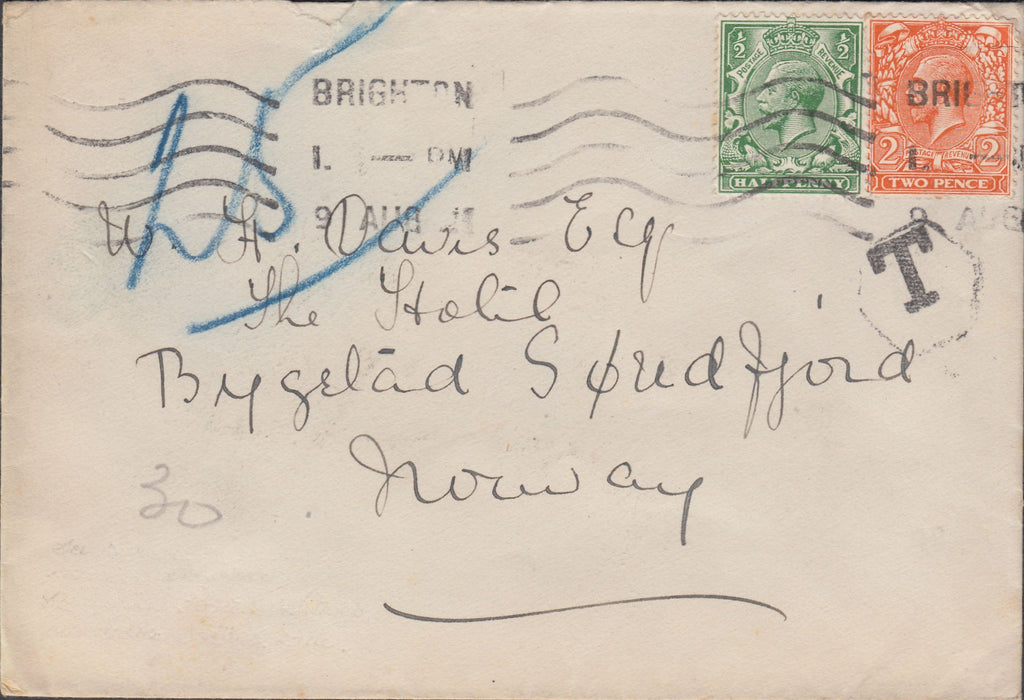 ½ ½
POSTAGE REVENUE
HALFPENNY
2 2
POSTAGE REVENUE
TWO PENCE
BRIGHTON
1. PM
9 AUG
BRI
9 AUG
T
W. H. Davis Esq
The Hotel
Bygstad Søndfjord
Norway
30